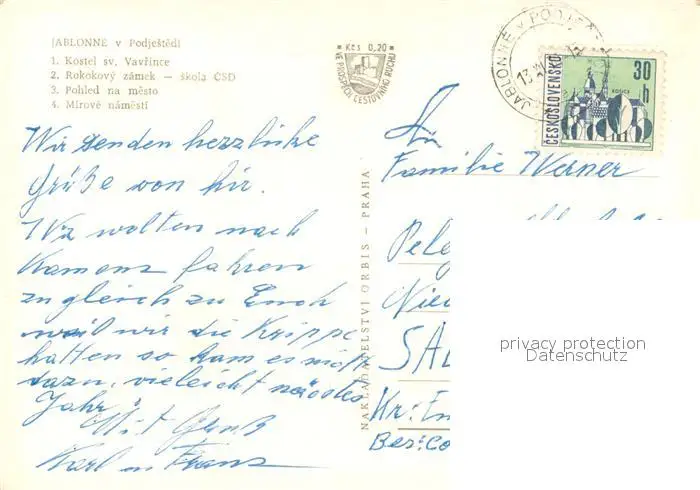 JABLONNÉ v Podještědí
1. Kostel sv. Vavřince
2. Rokokový zámek — škola ČSD
3. Pohled na město
4. Mírové náměstí
Kčs 0,20
VE PROSPĚCH CESTOVNÍHO RUCHU
JABLONNÉ V PODJEŠT
13.
ČESKOSLOVENSKO
30 h
KOŠICE
Wir senden herzlinke
Grüße von hir.
Wir wolten nach
Kamenz fahren
zu gleich zu Euch
weil wir die Krippe
hatten so kam es nicht
dazu, vieleicht nächstes
Jahr.
Mit Gruß
Karl u Franz
NAKLADATELSTVÍ ORBIS — PRAHA
An
Familie Werner
Pelg
Nied
SAL
Kr: En
Bez: Co
privacy protection
Datenschutz